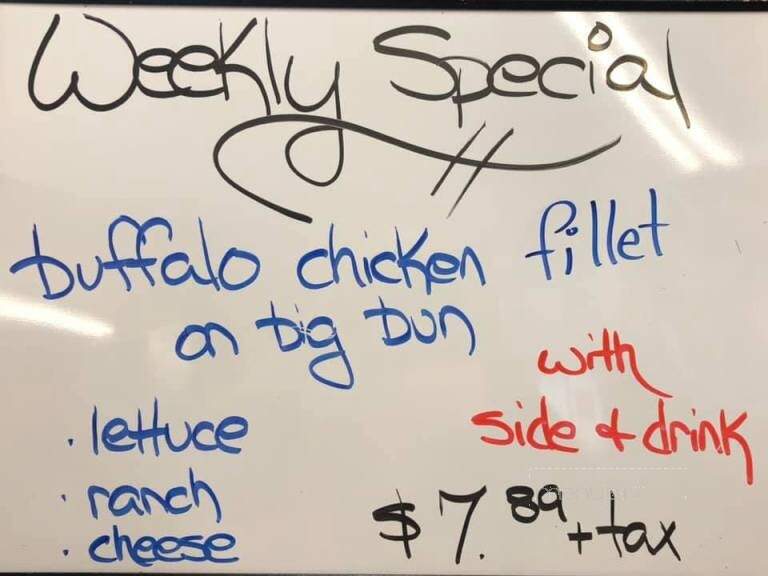 Weekly Special
buffalo chicken fillet
on big bun
with
side & drink
· lettuce
· ranch
· cheese
$7.89 + tax